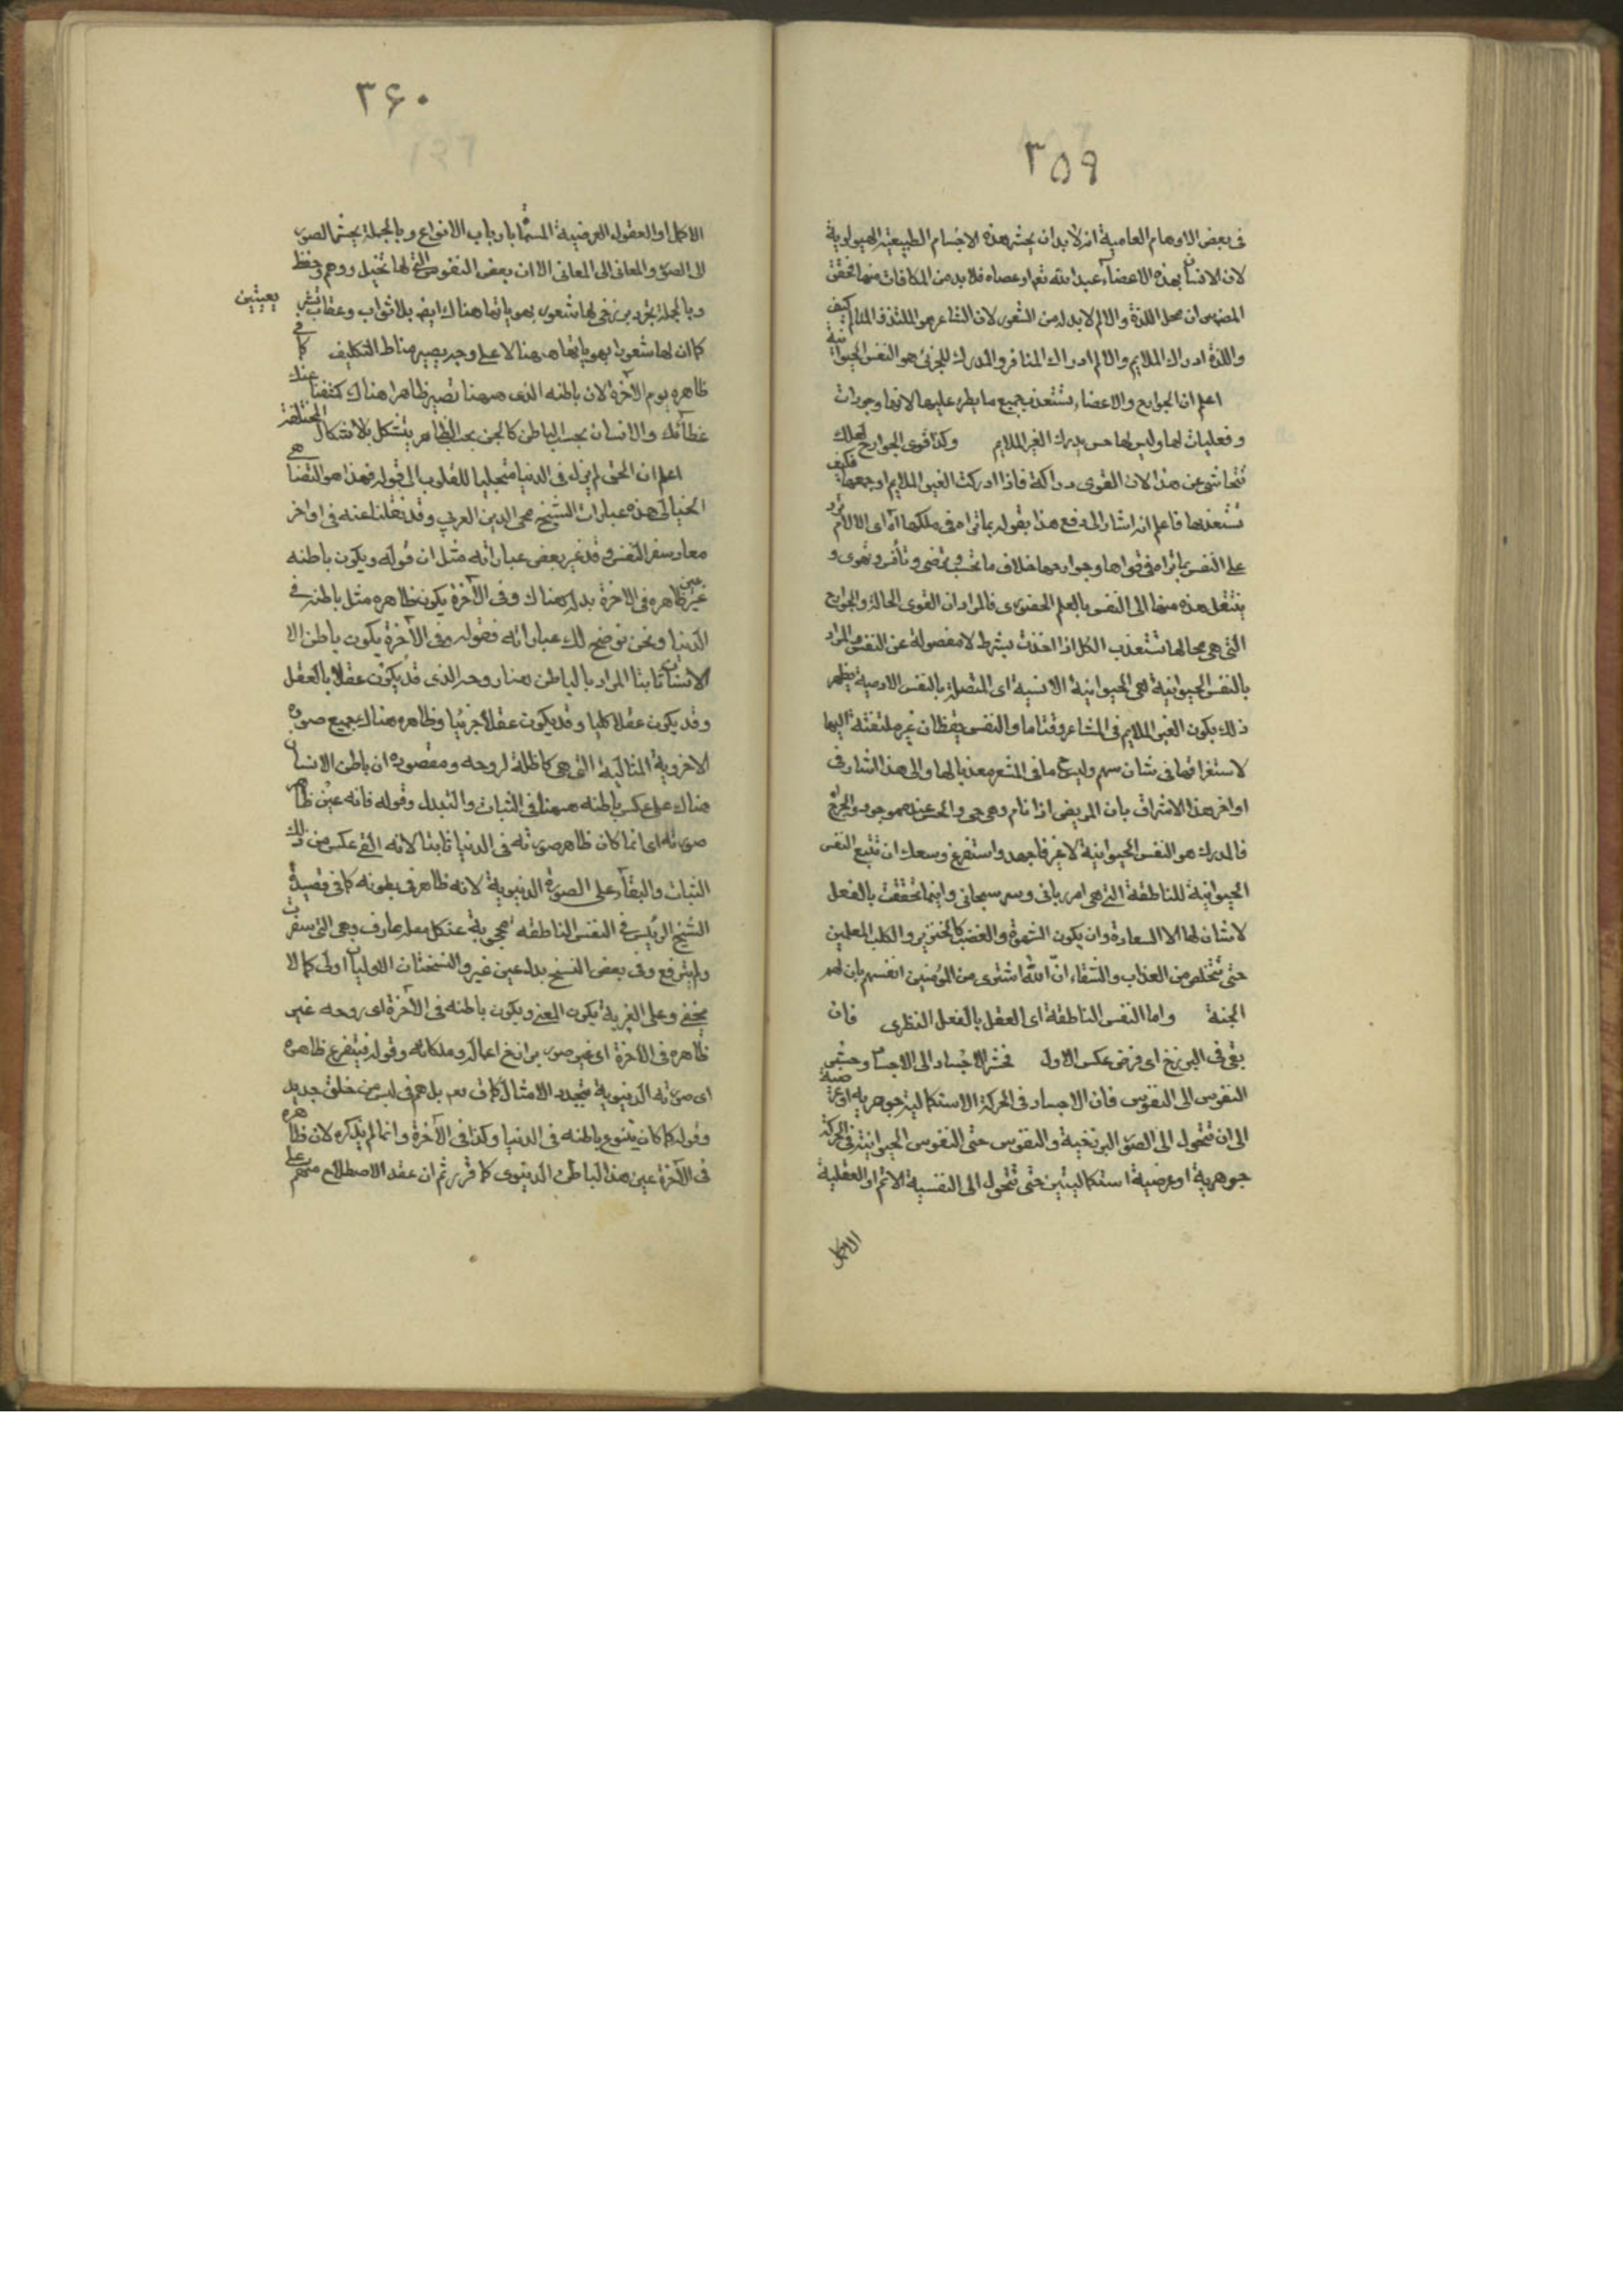 ٣٥٩
فى بعض الاوهام العامية انه لابد ان يحشر هذه الاجسام الطبيعية الهيولوية
لان الانسان بهذه الاعضاء عبد الله تعالى او عصاه فلا بد من المكافات منها فحقق
المص ان محل اللذة والالم لا بد له من الشعور لان الشاعر هو الملتذ والمتالم كيف
واللذة ادراك الملايم والالم ادراك المنافر والمدرك للجزئى هو النفس الحيوانية
اعلم ان الجوارح والاعضاء تستعذب جميع ما يطرء عليها لانها وجودات
وفعليات لها وليس لها حس يدرك الغير الملايم وكذا قوى الجوارح لعلك
تتحاشى عن هذا لان القوى دراكة فاذا ادركت الغير الملايم اوجعها فكيف
تستعذبها فاعلم انه اشار الى دفع هذا بقوله بما تراه فى ملكها اه اى الالام ترد
على النفس بما تراه فى قواها وجوارحها خلاف ما تحب وترضى وتأنس وتهوى و
ينتقل هذه منها الى النفس بالعلم الحضورى فالمراد ان القوى الحالة والجوارح
التى هى محالها تستعذب الكل اذا اخذت بشرط لا مفصولة عن النفس والمراد
بالنفس الحيوانية هى الحيوانية الانسية اى المتصلة بالنفس الادمية يظهر
ذلك بكون الغير الملايم فى المشاعر وقتا ما والنفس يقظان غير ملتفتة اليها
لاستغراقها فى شان مهم وليس ما فى المشعر معذبا لها والى هذا اشار فى
اواخر هذا الاشراق بان المريض اذا نام وهو حى والحس عنده موجود والجرح
فالمدرك هو النفس الحيوانية لا غير فاجهد واستفرغ وسعك ان تتبع النفس
الحيوانية للناطقة التى هى امر ربانى وسر سبحانى وانها تحققت بالفعل
لا شان لها الا السعادة وان يكون الشهوة والغضب كالخنزير والكلب المعلمين
حتى تتخلص من العذاب والشقاء ان الله اشترى من المؤمنين انفسهم بان لهم
الجنة واما النفس الناطقة اى العقل بالفعل النظرى فان
بقى فى البرزخ اى فرض عكس الاول فحشر الاجساد الى الاجسام وحشر
النفوس الى النفوس فان الاجساد فى الحركة الاستكمالية جوهرية او عرضية
الى ان تتحول الى الصور البرزخية والنفوس حتى النفوس الحيوانية فى الحركة
جوهرية او عرضية استكماليتين حتى تتحول الى النفسية الاتم او العقلية
الاكمل
٣۶٠
الاكمل او العقول العرضية المسماة بارباب الانواع وبالجملة يحشر الصور
الى الصور والمعانى الى المعانى الا ان بعض النفوس التى لها تخيل ووهم وحفظ
وبالجملة تجرد برزخى لها شعور بهوياتها هناك ايضا بلا ثواب وعقاب
كما ان لها شعورا بهوياتها هيهنا لا على وجه يصير مناط التكليف كما فى
ظاهره يوم الآخرة لان باطنه الذى هيهنا تصير ظاهرا هناك كشفنا عنك
غطائك والانسان بحسب الباطن كالجن بحسب الظاهر يتشكل بالاشكال المختلفة
اعلم ان الحق لم يزل فى الدنيا متجليا للقلوب الى قوله فهذا هو التضاهى
الخيالى هذه عبارات الشيخ محى الدين العربي وقد نقلنا عنه فى اواخر
معاد سفر النفس وقد غير بعض عباراته مثل ان قوله ويكون باطنه
غير ظاهره فى الاخرة بدله هناك وفى الآخرة يكون ظاهره مثل باطنه فى
الدنيا ونحن نوضح لك عباراته فقوله وفى الآخرة يكون باطن الا
الانسان ثابتا المراد بالباطن هنا روحه الذى قد يكون عقلا بالعقل
وقد يكون عقلا كليا وقد يكون عقلا جزئيا وظاهره هناك جميع صوره
الاخروية المثالية التى هى كاظلة لروحه ومقصوده ان باطن الانسان
هناك على عكس باطنه هيهنا فى الثبات والتبدل وقوله فانه عين ظاهر
صورته اى انما كان ظاهر صورته فى الدنيا ثابتا لانه القى عكس من ذلك
الثبات والبقاء على الصورة الدنيوية لانه ظاهر فى بطونه كما فى قصيدة
الشيخ الرئيس فى النفس الناطقة محجوبة عن كل مقلة عارف وهى التى سفرت
ولم تتبرقع وفى بعض النسخ بدل عين غير والنسختان الاوليان اولى كما لا
يخفى وعلى الغيرية يكون المعنى ويكون باطنه فى الآخرة اى روحه غير
ظاهره فى الآخرة اى غير صور برازخ اعماله وملكاته وقوله فيتفرع ظاهره
اى صورته الدنيوية بتجدد الامثال كما قال تعم بل هم فى لبس من خلق جديد
وقوله كما كان يتنوع باطنه فى الدنيا وكذا فى الآخرة وانما لم يذكره لان ظاهره
فى الآخرة عين هذا الباطن الدنيوى كما قرر ثم ان عقد الاصطلاح منهم على